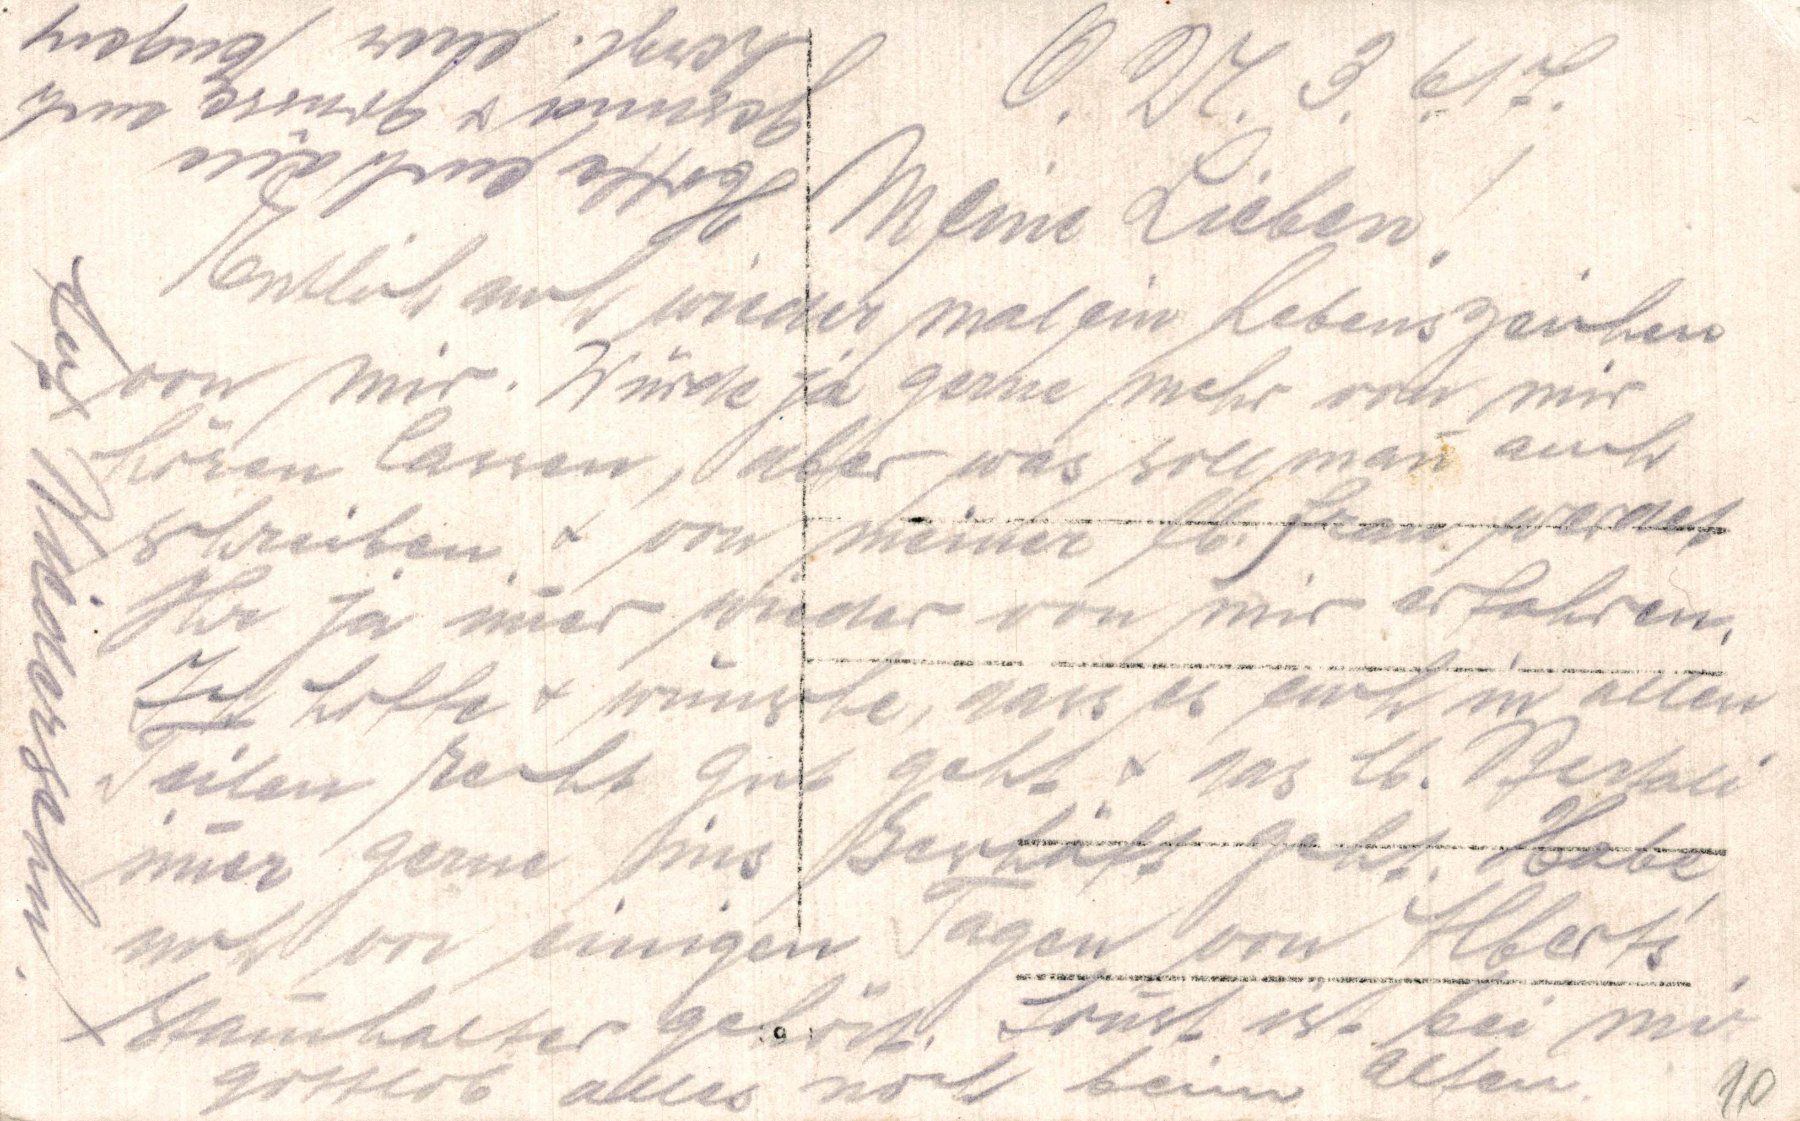 O. DK. 3. 6. 17.
Meine Lieben!
Entlich auch wieder mal ein Lebenszeichen
von mir. Würde ja gerne mehr von mir
hören lassen, aber was soll man auch
schreiben & von meiner lb. Frau werdet
Ihr ja im̄er wieder von mir erfahren.
Ich hoffe & wünsche, dass es euch in allen
Teilen recht gut geht & das lb.
im̄er gerne ins Geschäft geht. Habe
auch vor einigen Tagen von Albert's
Stam̄halter gehört. Sonst ist bei mir
gottlob alles noch beim alten.
Hoffe euch alle
gesund & grüsse euch
herzl. euer Eugen
10